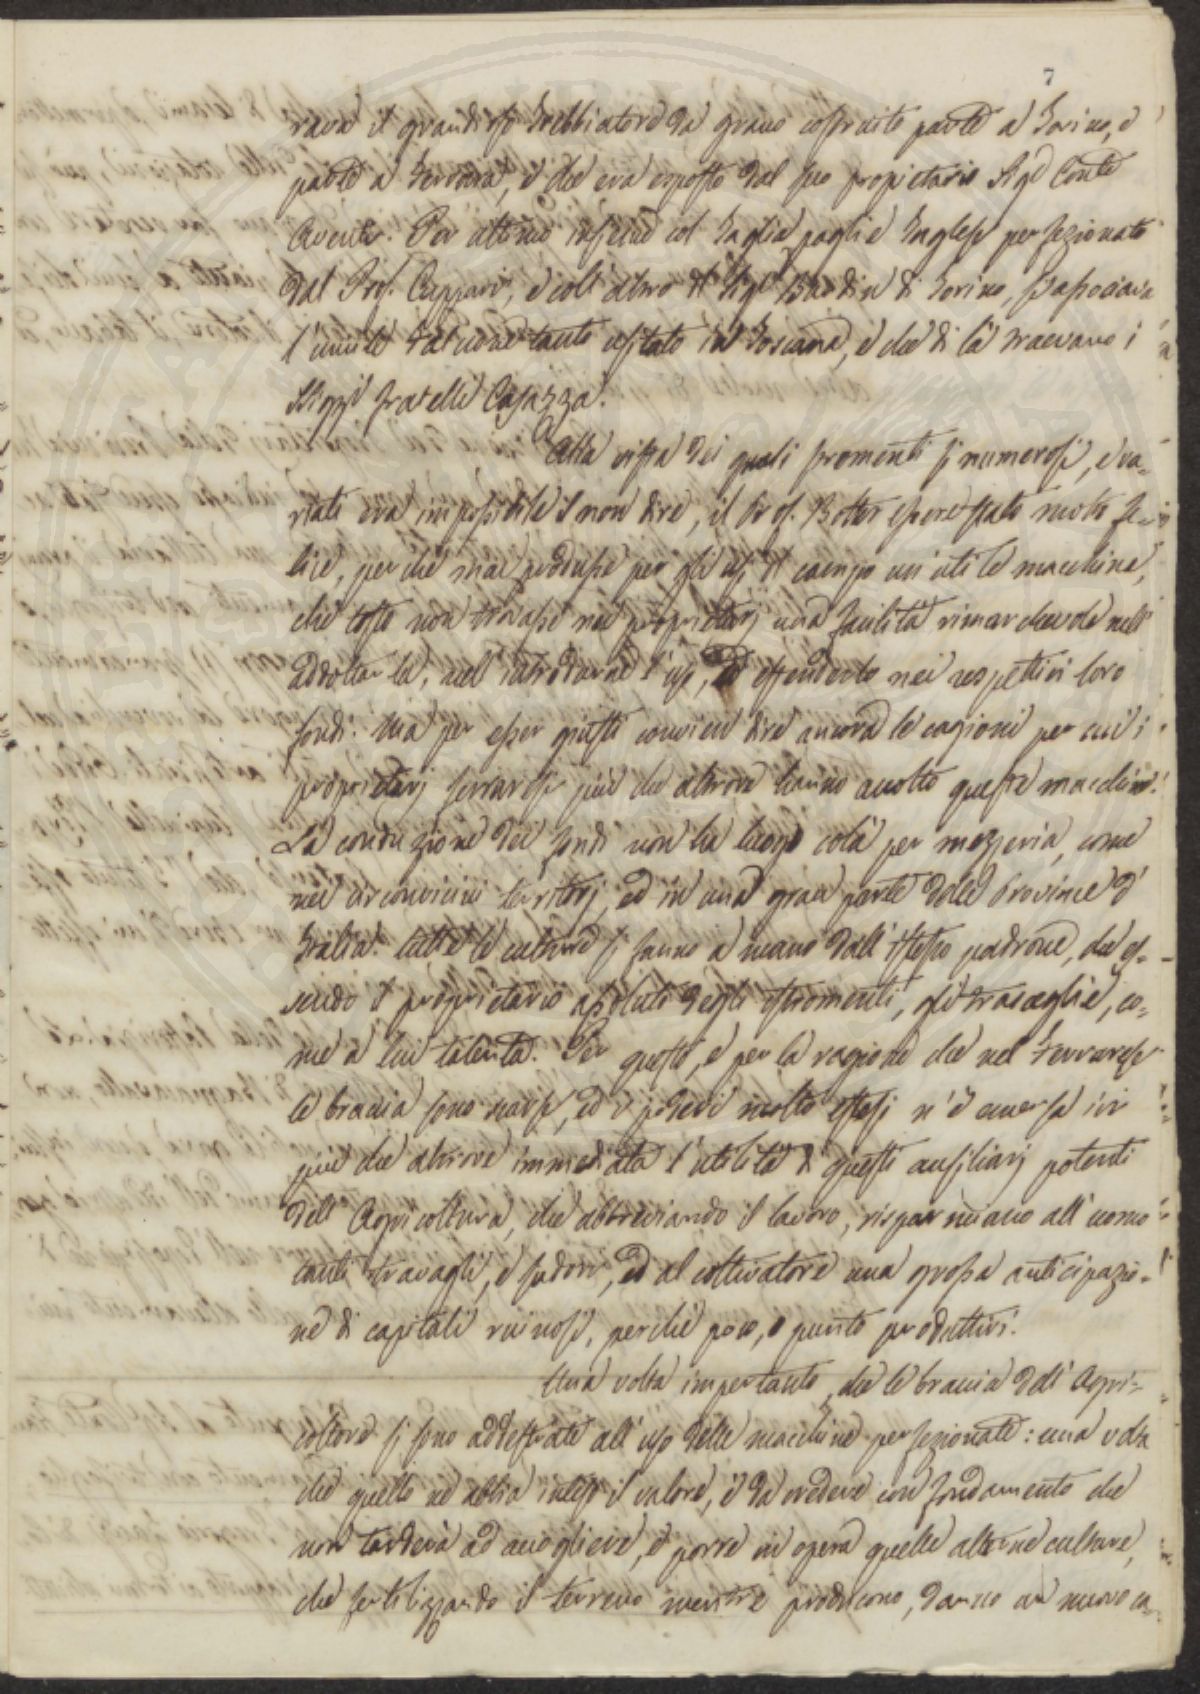 7
rava il grandioso trebbiatore da grano costruito parte a Torino, e
parte a Ferrara, e che era esposto dal suo propietario Sigr Conte
Aventi. Per ultimo insieme col Taglia paglie Inglese perfezionato
dal Prof. Cuppari, e coll'altro del Sigr Bardin di Torino, s'associava
l'umile tanto usitato in Toscana, e che di là traevano i
Sigg.i fratelli Casazza.
Alla vista dei quali stromenti sì numerosi, e va=
riati era impossibile il non dire, il Prof. Botter essere stato molto fe=
lice, perchè mai produsse per gli usi del campo un'utile macchina,
che tosto non trovasse nei proprietarj una facilità rimarchevole nell'
addottarla, nell'introdurne l'uso, ed estenderlo nei respettivi loro
fondi. Ma per esser giusti convien dire ancora le cagioni per cui i
proprietarj ferraresi più che altrove hanno accolto queste macchine.
La conduzione dei fondi non ha luogo colà per mezzeria, come
nei circonvicini territorj, ed in una gran parte delle Province d'
Italia. Tutte le culture si fanno a mano dall'istesso padrone, che es=
sendo il proprietario assoluto degli istromenti, gli trasceglie, co=
me a lui talenta. Per questo, e per la ragione che nel Ferrarese
le braccia sono scarse, ed i poderi molto estesi n'è emersa ivi
più che altrove immediata l'utilità di questi ausiliarj potenti
dell'Agricoltura, che abbreviando il lavoro, risparmiano all'uomo
tanti travagli, e sudori, ed al coltivatore una grossa anticipazio=
ne di capitali ruinosi, perchè poco, o punto produttivi.
Una volta importanto, che le braccia dell'Agri=
coltore si sono addestrate all'uso delle macchine perfezionate: una volta
che quello ne abbia inteso il valore, è da credere con fondamento che
non tarderà ad accogliere, e porre in opera quelle altre culture,
che fertilizzando il terreno mentre producono, danno un nuovo ca=